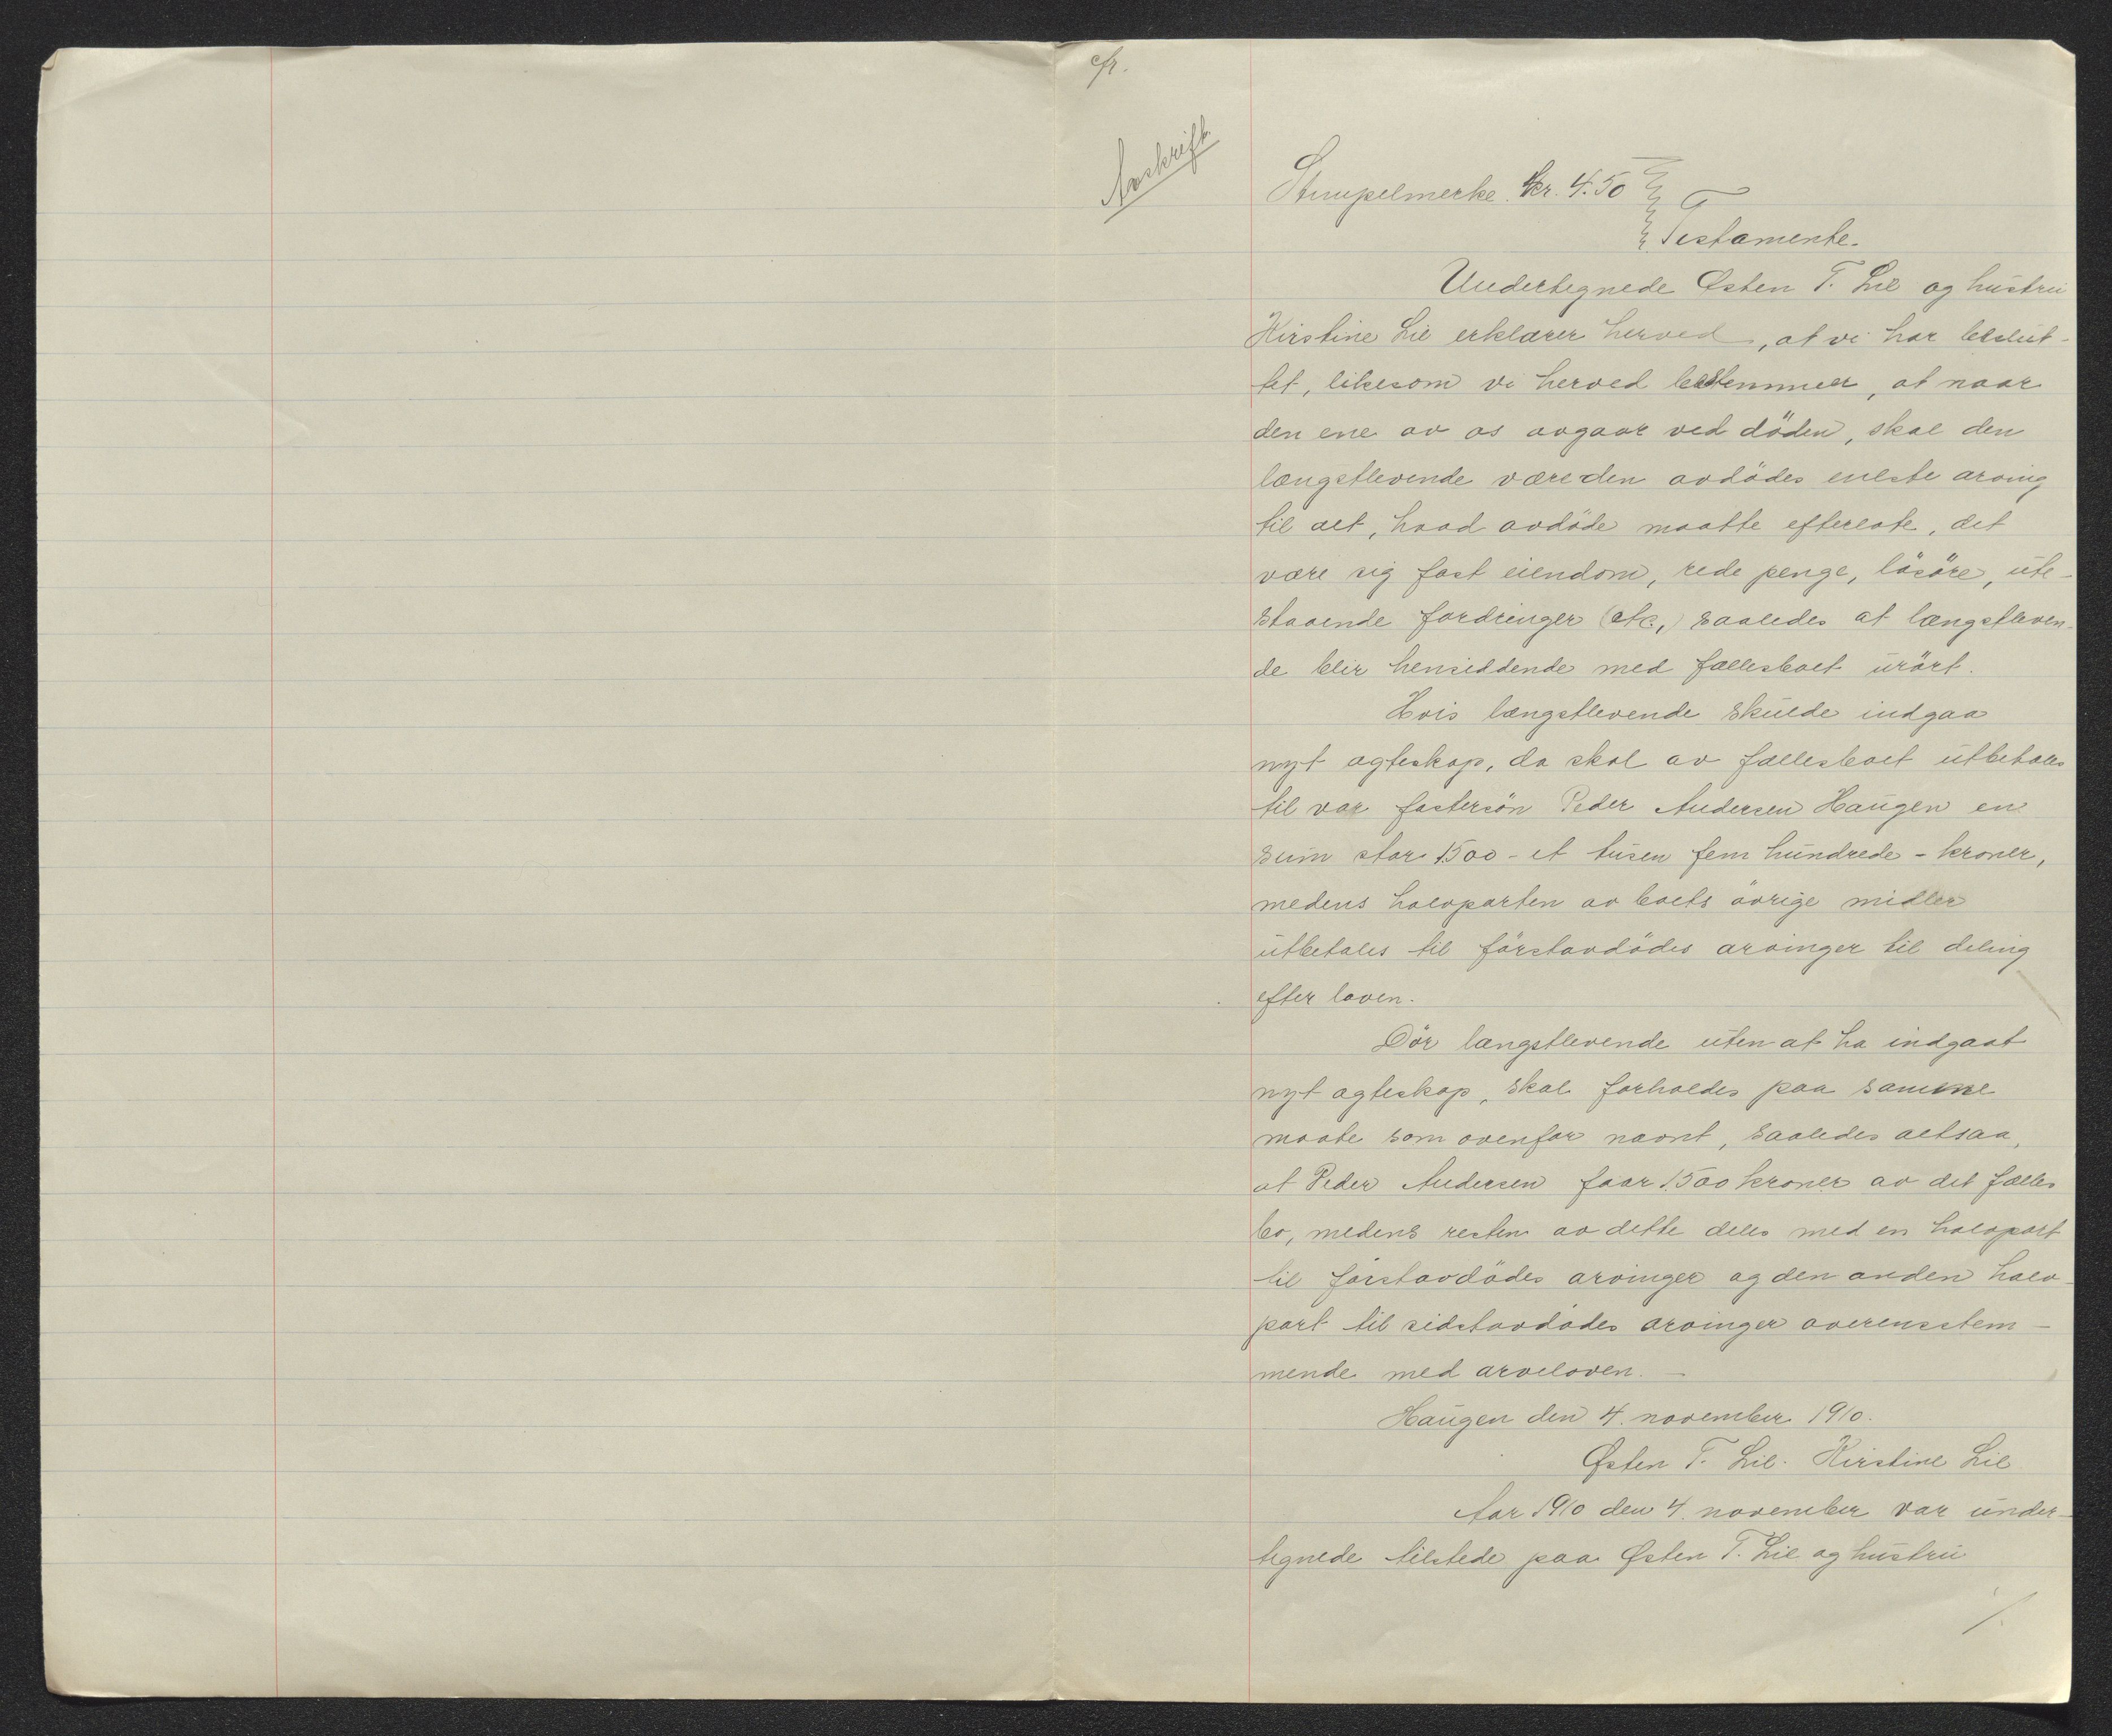 cfr.
Avskrift
Stempelmerke kr. 4.50
Testamente.
Undertegnede Østen T. Lie og hustru
Kirstine Lie erklærer herved, at vi har beslut-
tet, likesom vi herved bestemmer, at naar
den ene av os avgaar ved döden, skal den
længstlevende være den avdödes eneste arving
til alt, hvad avdöde maatte efterlate, det
være sig fast eiendom, rede penge, lösöre, ute-
staaende fordringer (etc,) saaledes at længstleven-
de blir hensiddende med fællesboet urört.
Hvis længstlevende skulde indgaa
nyt egteskap, da skal av fællesboet utbetales
til vor fostersön Peder Andersen Haugen en
sum stor 1500 - et tusen fem hundrede - kroner,
medens halvparten av boets övrige midler
utbetales til förstavdödes arvinger til deling
efter loven.
Dör længstlevende uten at ha indgaat
nyt egteskap, skal forholdes paa samme
maate som ovenfor nævnt, saaledes altsaa,
at Peder Andersen faar 1500 kroner av det fælles
bo, medens resten av dette deles med en halvpart
til förstavdödes arvinger og den anden halv-
part til sidstavdödes arvinger overensstem-
mende med arveloven. -
Haugen den 4. november 1910.
Østen T. Lie. Kirstine Lie
Aar 1910 den 4. november var under-
tegnede tilstede paa Østen T. Lie og hustru
./.